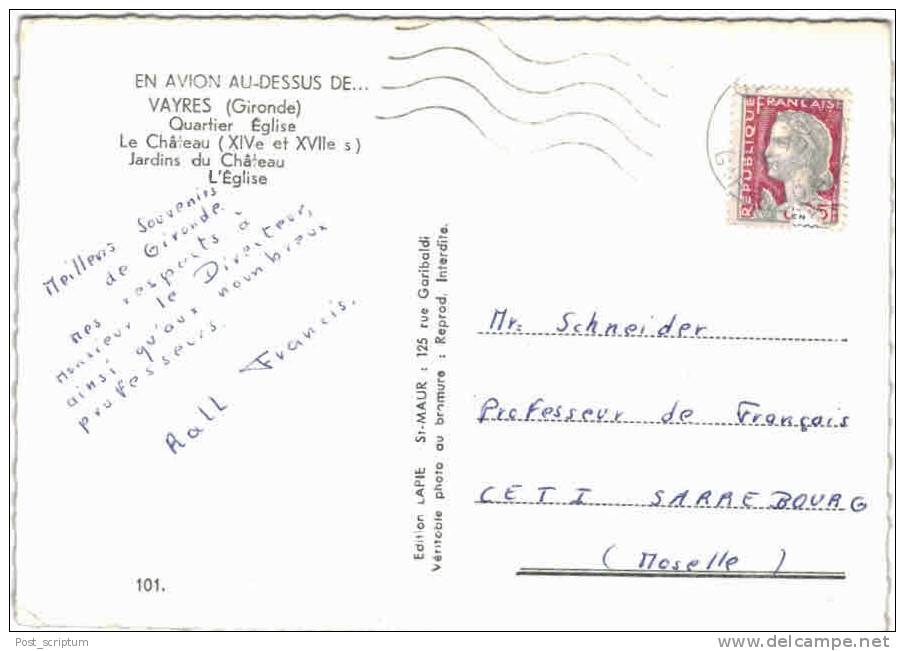 EN AVION AU-DESSUS DE...
VAYRES (Gironde)
Quartier Église
Le Château (XIVe et XVIIe s)
Jardins du Château
L'Église
Meilleurs Souvenirs
de Gironde.
mes respects à
monsieur le Directeur,
ainsi qu'aux nombreux
professeurs.
Rall Francis.
101.
Edition LAPIE St-MAUR : 125 rue Garibaldi
Véritable photo au bromure : Reprod. Interdite.
RÉPUBLIQUE FRANÇAISE
Mr. Schneider
Professeur de Français
CETI SARREBOURG
(Moselle)
Post_scriptum
delcampe.net